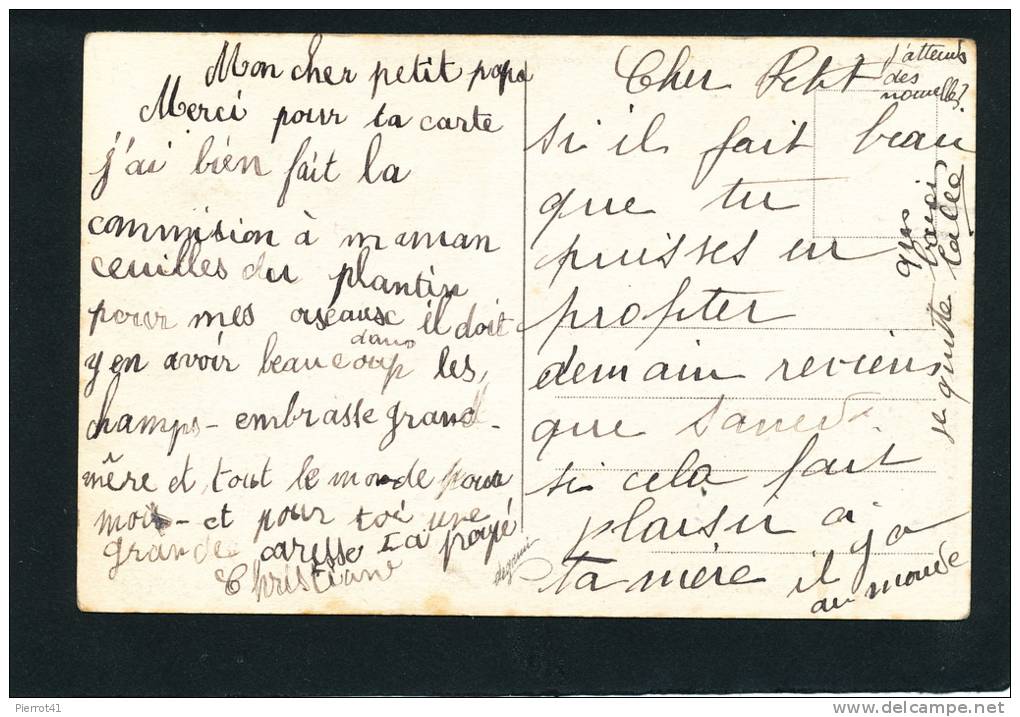 Mon cher petit papa
Merci pour ta carte
j'ai bien fait la
commision à maman
ceuilles du plantin
pour mes oiseause il doit
y en avoir beaucoup dans les
champs - embrasse grand-
mère et tout le monde pour
moi - et pour toi une
grande caresse
Christiane
Cher Petit
si il fait beau
que tu
puisses en
profiter
demain reviens
que Samedi
si cela fait
plaisir à
ta mère il y a
au monde
j'attends
des
nouvelles?
je quitte
Pierrot41
delcampe.net